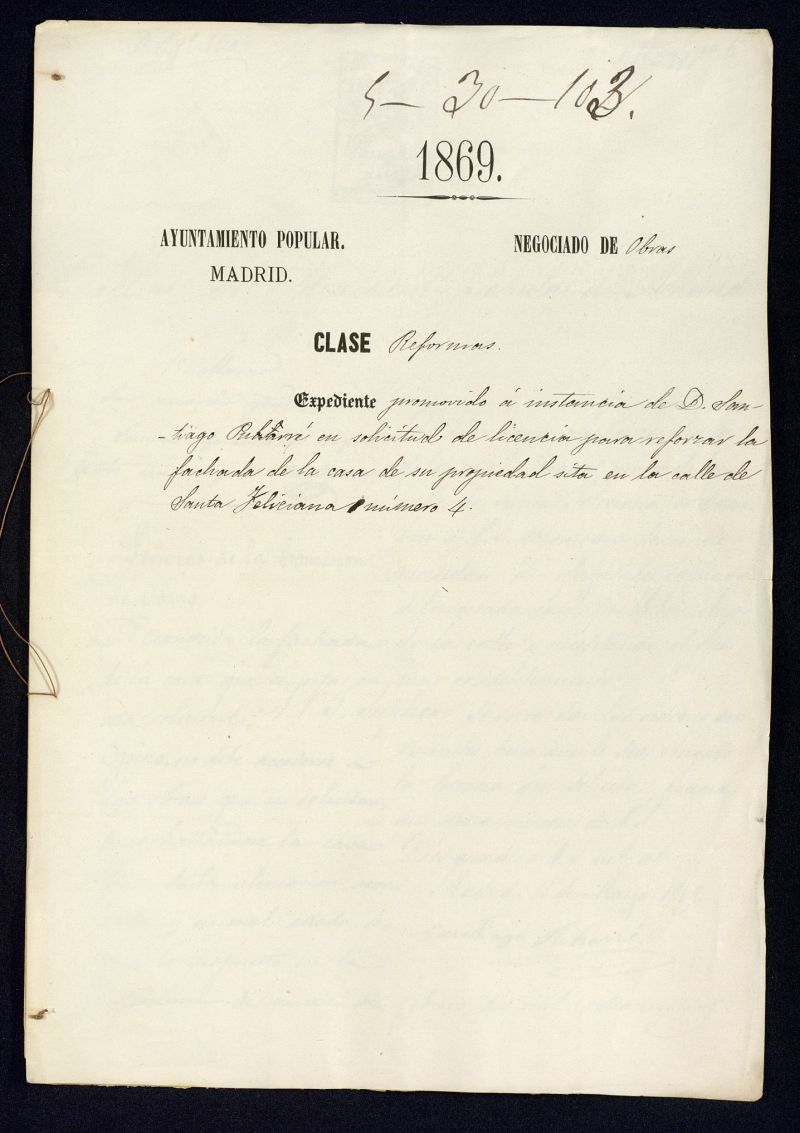 5 - 30 - 103.
1869.
AYUNTAMIENTO POPULAR.
MADRID.
NEGOCIADO DE Obras
CLASE Reformas.
Expediente promovido á instancia de D. San-
-tiago en solicitud de licencia para reforzar la
fachada de la casa de su propiedad sita en la calle de
Santa Feliciana número 4.